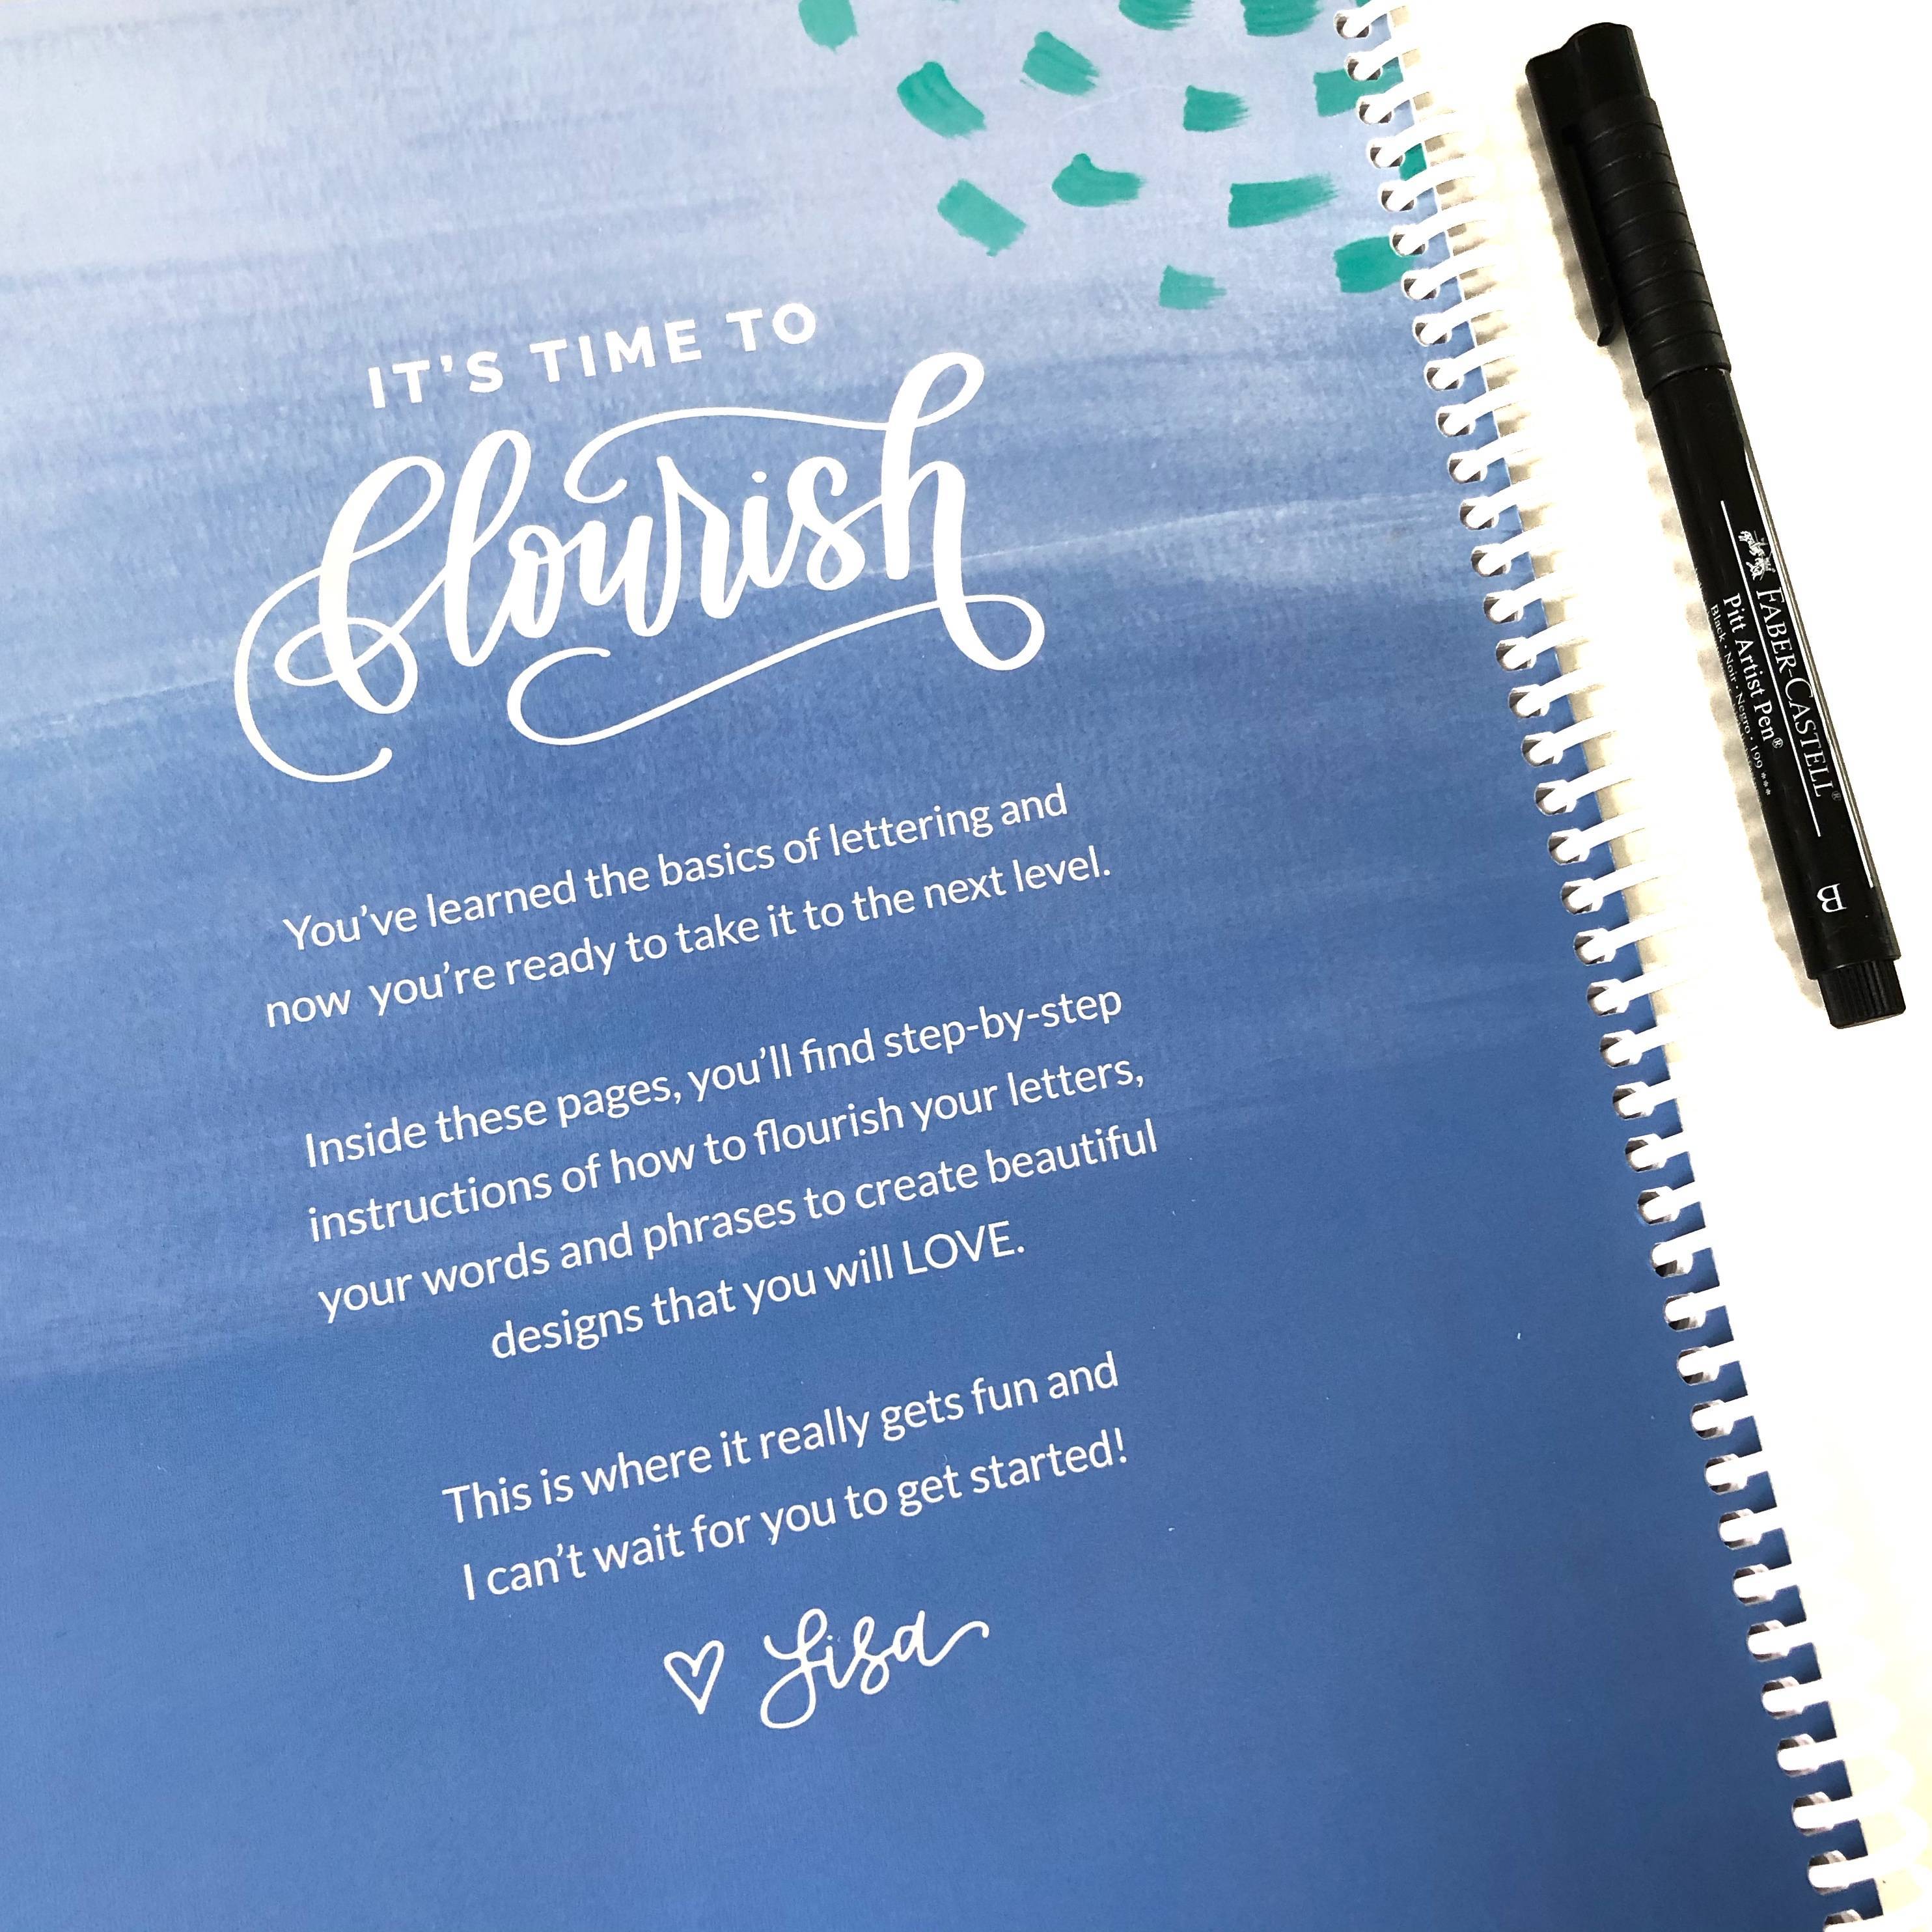 IT'S TIME TO
flourish
You've learned the basics of lettering and
now you're ready to take it to the next level.
Inside these pages, you'll find step-by-step
instructions of how to flourish your letters,
your words and phrases to create beautiful
designs that you will LOVE.
This is where it really gets fun and
I can't wait for you to get started!
♡ Lisa
FABER-CASTELL®
Pitt Artist Pen®
Black · Noir · Negro · 199 ***
B